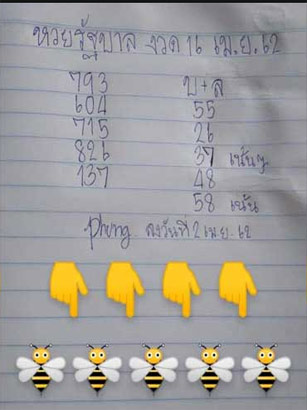 หวยรัฐบาล งวด 16 เม.ย. 62
793 บ+ล
604 55
715 26
826 37 เน้นๆ
137 48
58 เน้น
Phong ลงวันที่ 2 เม.ย. 62